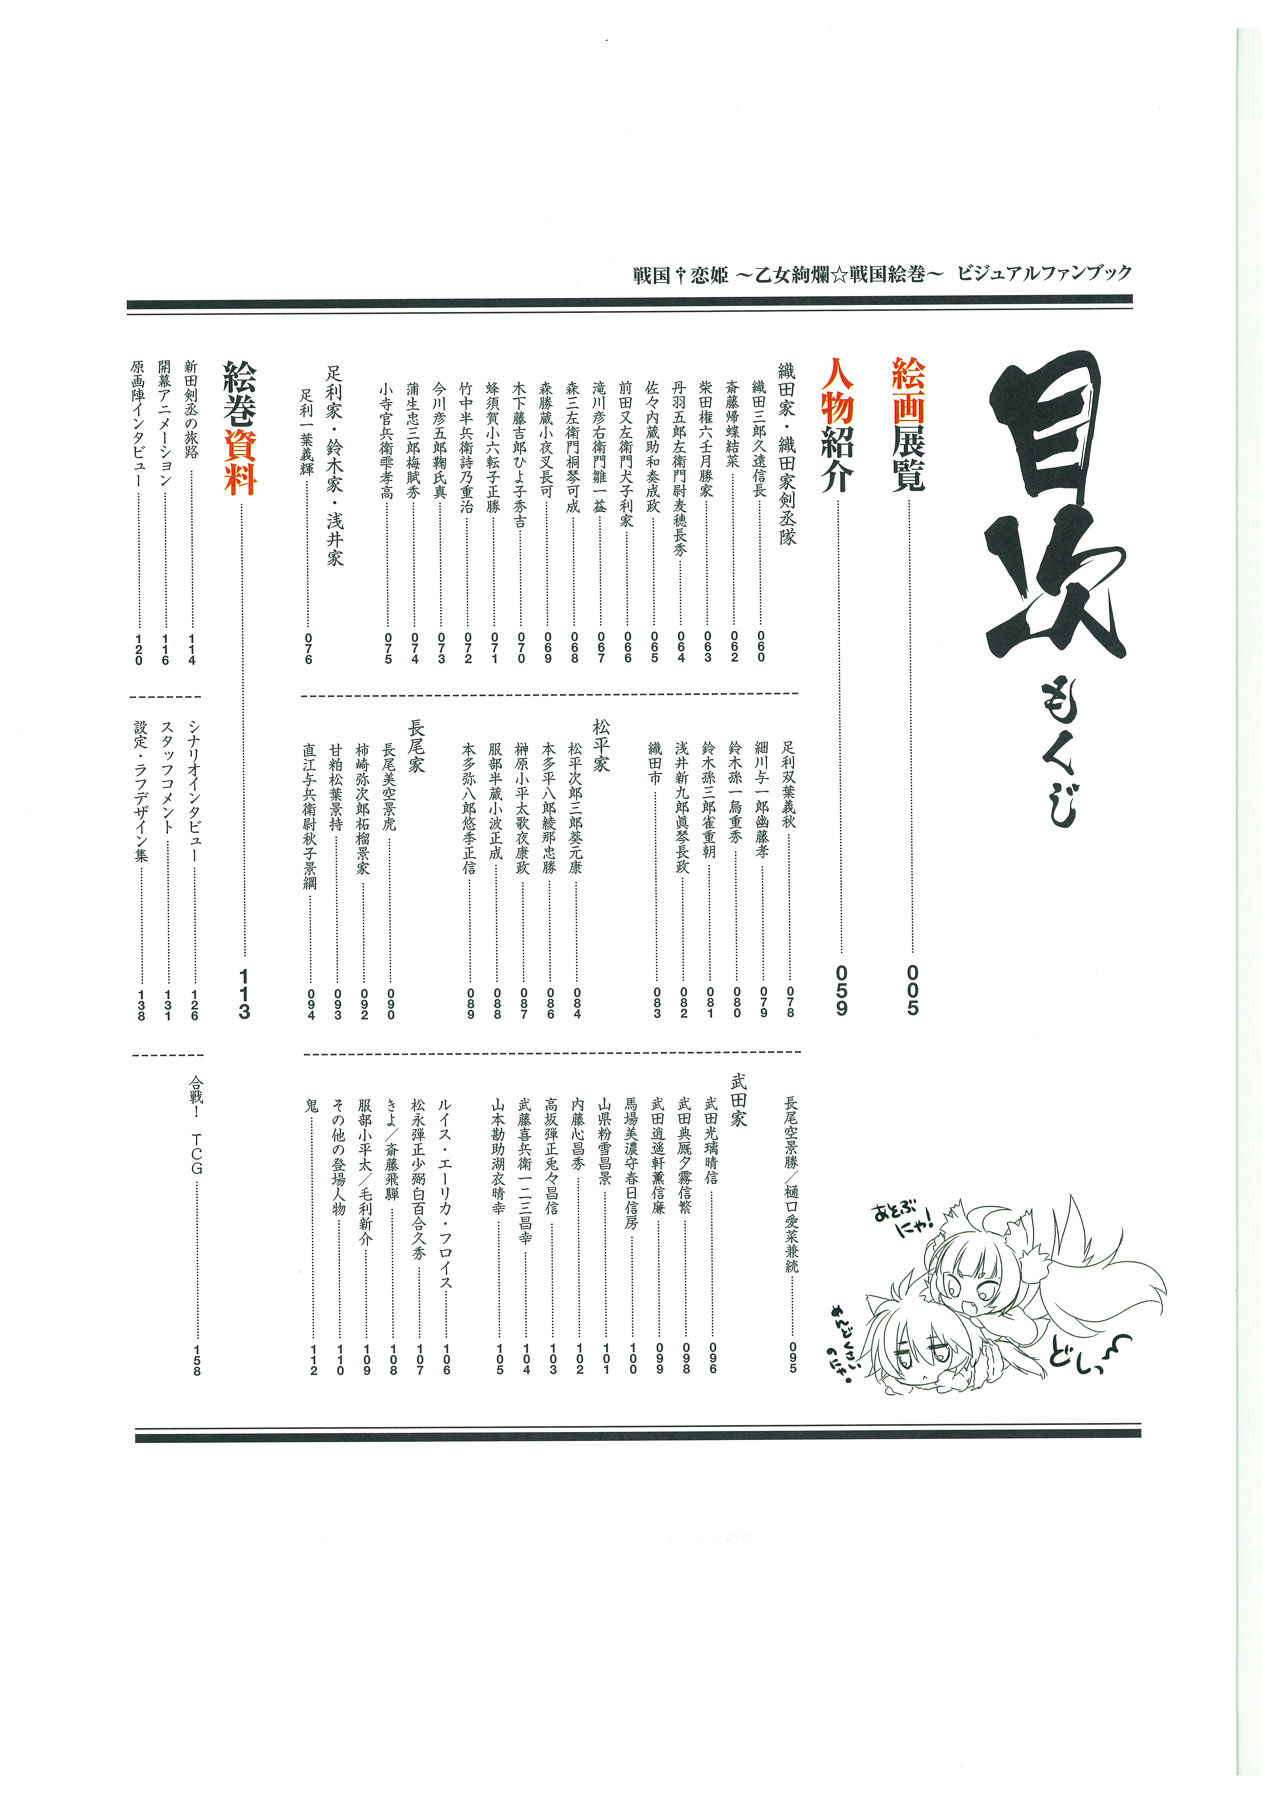 戦国†恋姫 ～乙女絢爛☆戦国絵巻～ ビジュアルファンブック
目次
もくじ
絵画展覧 005
人物紹介 059
織田家・織田家剣丞隊
織田三郎久遠信長 060
斎藤帰蝶結菜 062
柴田権六壬月勝家 063
丹羽五郎左衛門尉麦穂長秀 064
佐々内蔵助和奏成政 065
前田又左衛門犬子利家 066
滝川彦右衛門雛一益 067
森三左衛門桐琴可成 068
森勝蔵小夜叉長可 069
木下藤吉郎ひよ子秀吉 070
蜂須賀小六転子正勝 071
竹中半兵衛詩乃重治 072
今川彦五郎鞠氏真 073
蒲生忠三郎梅賦秀 074
小寺官兵衛雫孝高 075
足利家・鈴木家・浅井家
足利一葉義輝 076
足利双葉義秋 078
細川与一郎幽藤孝 079
鈴木孫一烏重秀 080
鈴木孫三郎雀重朝 081
浅井新九郎眞琴長政 082
織田市 083
松平家
松平次郎三郎葵元康 084
本多平八郎綾那忠勝 086
榊原小平太歌夜康政 087
服部半蔵小波正成 088
本多弥八郎悠季正信 089
長尾家
長尾美空景虎 090
柿崎弥次郎柘榴景家 092
甘粕松葉景持 093
直江与兵衛尉秋子景綱 094
長尾空景勝／樋口愛菜兼続 095
武田家
武田光璃晴信 096
武田典厩夕霧信繁 098
武田逍遥軒薫信廉 099
馬場美濃守春日信房 100
山県粉雪昌景 101
内藤心昌秀 102
高坂弾正兎々昌信 103
武藤喜兵衛一二三昌幸 104
山本勘助湖衣晴幸 105
ルイス・エーリカ・フロイス 106
松永弾正少弼白百合久秀 107
きよ／斎藤飛騨 108
服部小平太／毛利新介 109
その他の登場人物 110
鬼 112
絵巻資料 113
新田剣丞の旅路 114
開幕アニメーション 116
原画陣インタビュー 120
シナリオインタビュー 126
スタッフコメント 131
設定・ラフデザイン集 138
合戦！ TCG 158
あそぶ
にゃ！
めんどくさい
のにゃ。
どしっ～